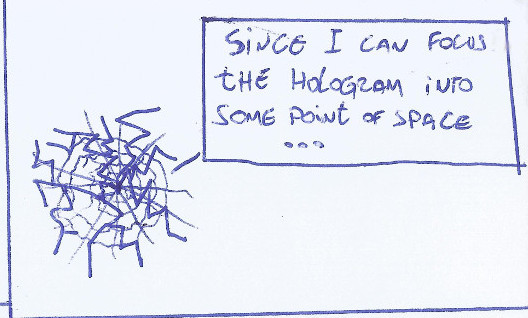 SINCE I CAN FOCUS
THE HOLOGRAM INTO
SOME POINT OF SPACE
...